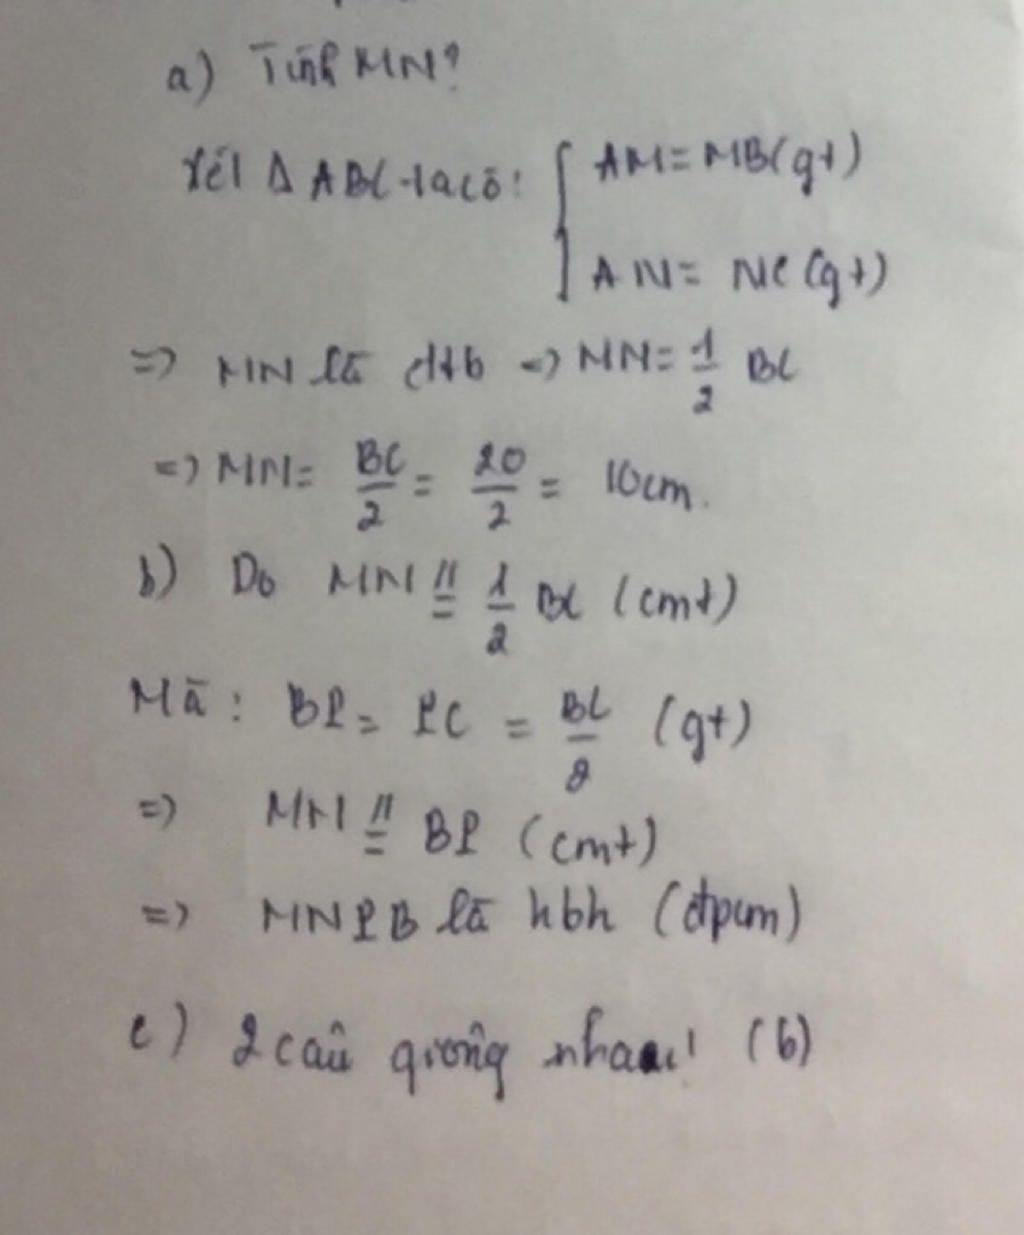 a) Tính MN?
Xét Δ ABC ta có: { AM = MB (gt)
AN = NC (gt)
=> MN là đtb => MN = 1/2 BC
=> MN = BC/2 = 20/2 = 10cm.
b) Do MN //= 1/2 BC (cmt)
Mà : BP = PC = BC/2 (gt)
=> MN //= BP (cmt)
=> MNPB là hbh (đpcm)
c) 2 câu giống nhau! (b)